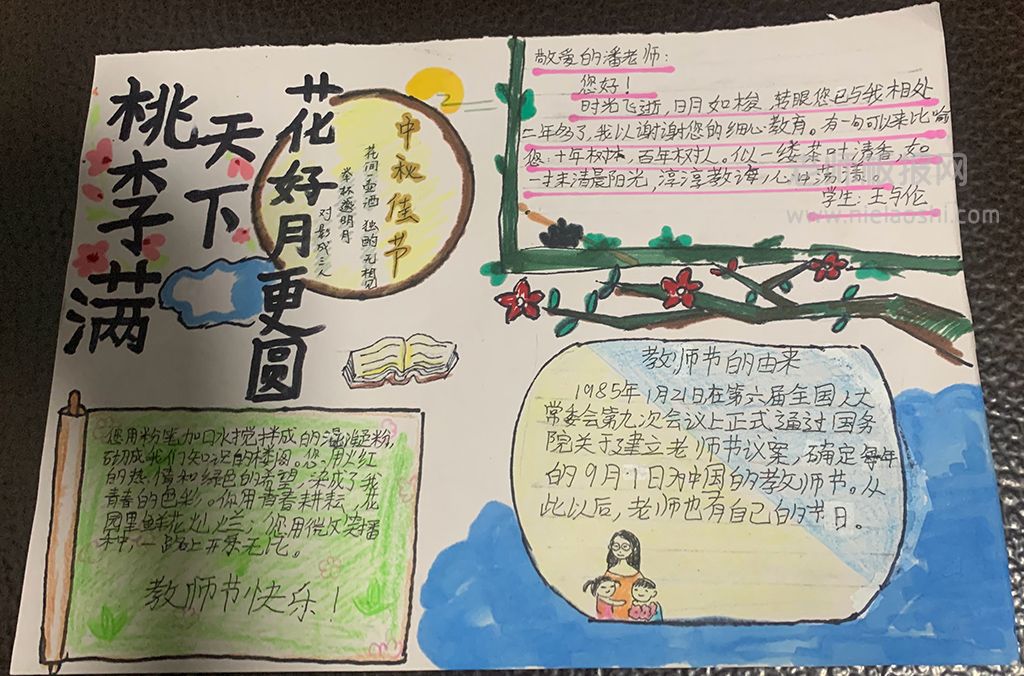 桃李满
天下
花好月更圆
中秋佳节
花间一壶酒 独酌无相亲
举杯邀明月
对影成三人
敬爱的潘老师:
您好!
时光飞逝,日月如梭,转眼您已与我相处
二年多了,我以谢谢您的细心教育。有一句可以来比喻
您:十年树木,百年树人。似一缕茶叶清香,如
一抹清晨阳光,淳淳教诲,心中荡漾。
学生:王与伦
www.nielaoshi.com
教师节的由来
1985年1月21日在第六届全国人大
常委会第九次会议上正式通过国务
院关于建立老师节议案,确定每年
的9月1日为中国的教师节。从
此以后,老师也有自己的节日。
您用粉笔加口水搅拌成的混凝粉,
砌成我们知识的楼阁。您,用火红
的热情和绿色的希望,染成了我
青春的色彩。你用青春耕耘,花
园里鲜花灿烂;您用
种,一路上开零无比。
教师节快乐!